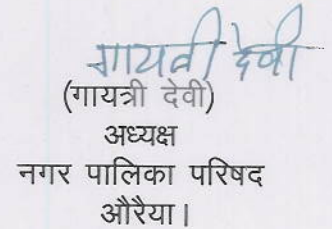 गायत्री देवी
(गायत्री देवी)
अध्यक्ष
नगर पालिका परिषद
औरैया।